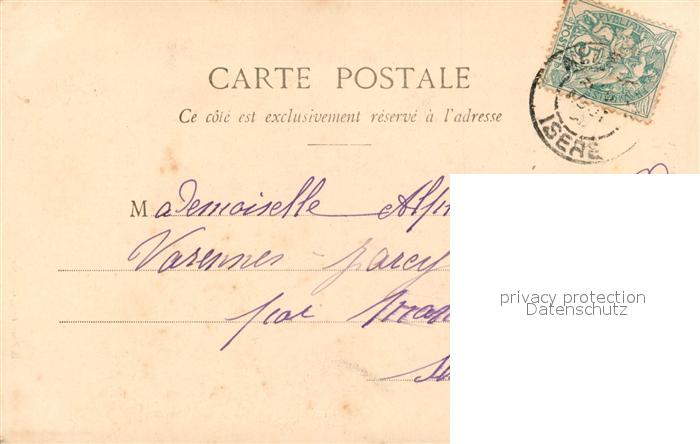 CARTE POSTALE
Ce côté est exclusivement réservé à l'adresse
POSTES
5
ISÈRE
Mademoiselle
Varennes - Jarcy
par
privacy protection
Datenschutz